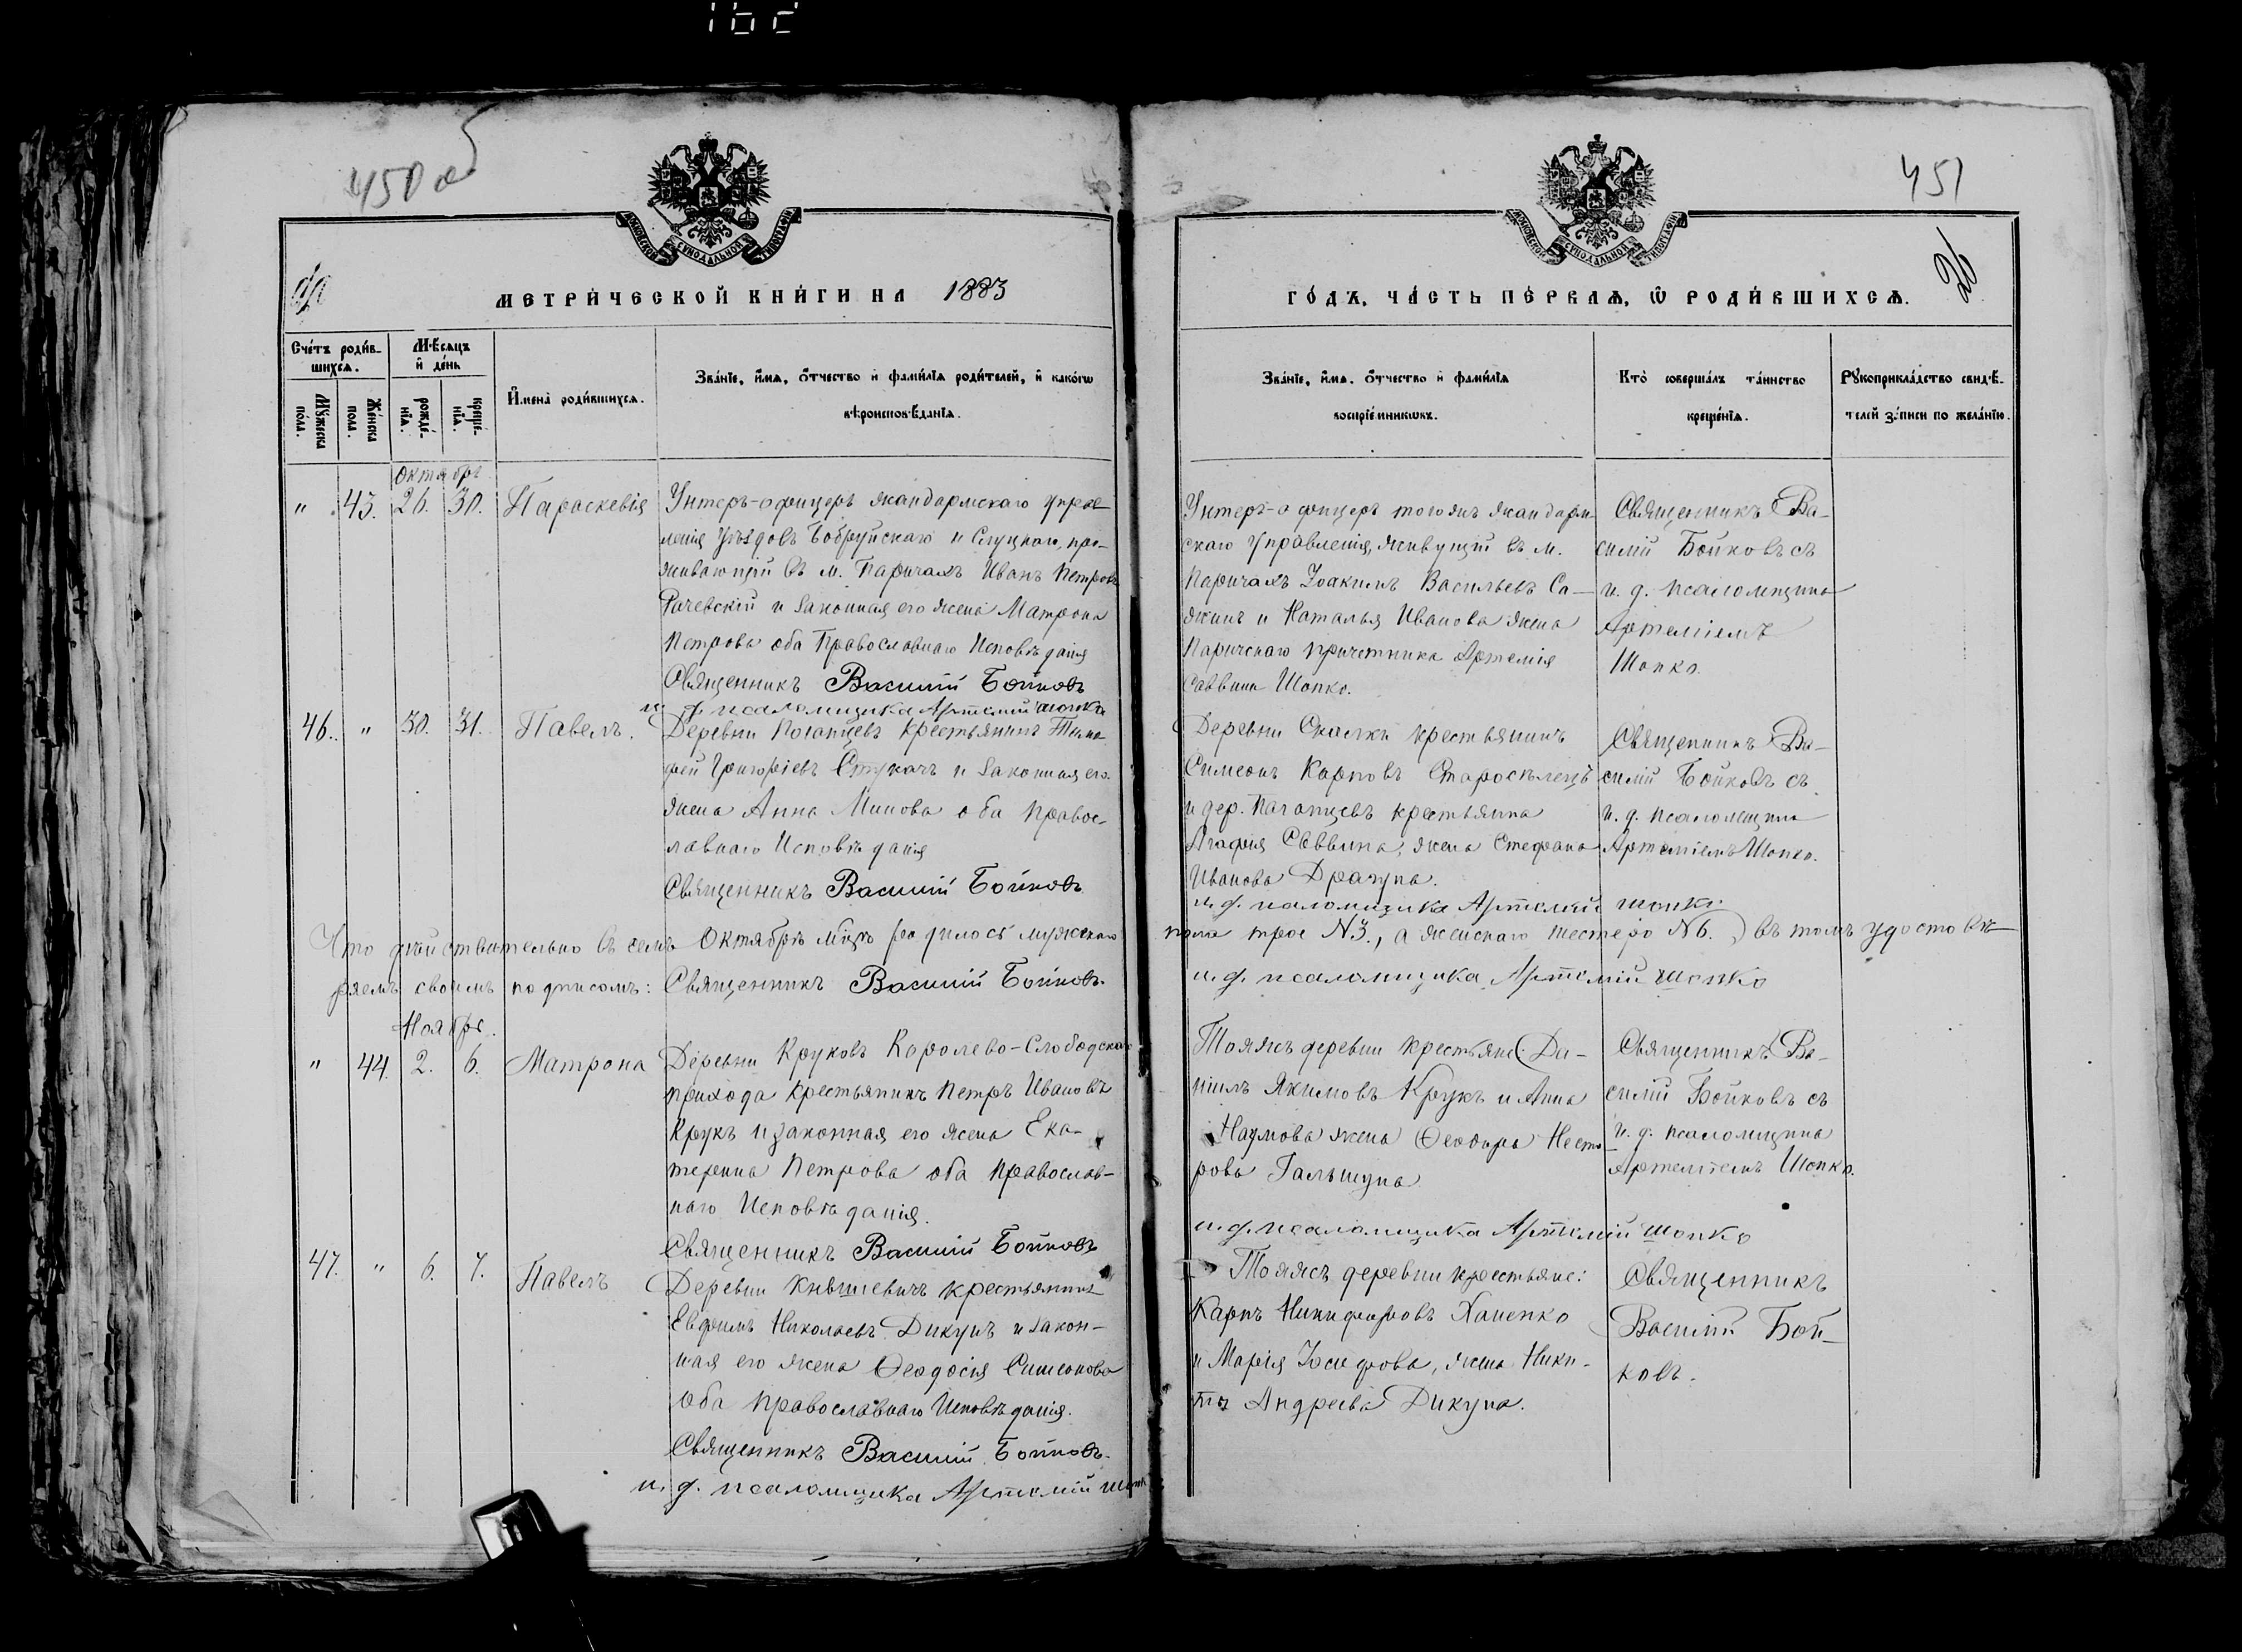 450 об
451
26
МОСКОВСКОЙ СУНОДАЛЬНОЙ ТИПОГРАФІИ
МОСКОВСКОЙ СУНОДАЛЬНОЙ ТИПОГРАФІИ
МЕТРИ́ЧЕСКОЙ КНИ́ГИ НА 1883
ГО́ДЪ, ЧА́СТЬ ПЕ́РВАѦ, Ѡ҆ РОДИ́ВШИХСѦ.
Сче́тъ роди́в-
шихсѧ.
Мꙋ́жеска
по́ла.
Же́нска
пола.
Мѣ́сѧцъ
и҆ де́нь
рожде́-
нїѧ.
креще́-
нїѧ.
И҆мена̀ роди́вшихсѧ.
Зва́нїе, и҆́мѧ, ѻ҆́тчество и҆ фами́лїѧ роди́телей, и҆ како́гѡ
вѣроисповѣ́данїѧ.
Зва́нїе, и҆́мѧ, ѻ҆́тчество и҆ фами́лїѧ
воспрїе́мникѡвъ.
Кто̀ соверша́лъ та́инство
креще́нїѧ.
Рꙋкоприкла́дство свидѣ́-
телей за́писи по жела́нїю.
Октябрь
" 43. 26. 30. Параскевія
Унтеръ-офицеръ жандармскаго управ
ленія Уѣздовъ Бобруйскаго и Слуцкаго, про-
живающій въ м. Паричахъ Иванъ Петровъ
Рачевскій и законная его жена Матрона
Петрова оба Православнаго Исповѣданія
Священникъ Василій Бойковъ
и. д. псаломщика Артемій Шопко
Унтеръ-офицеръ тогожъ жандарм-
скаго Управленія, живущій въ м.
Паричахъ Іоакимъ Васильевъ Са-
жинъ и Наталья Иванова жена
Паричскаго причетника Артемія
Саввина Шопко.
Священникъ Ва-
силій Бойковъ съ
и. д. псаломщика
Артеміемъ
Шопко.
46. " 30. 31. Павелъ.
Деревни Погапцевъ крестьянинъ Тимо
фей Григорьевъ Стукачъ и законная его
жена Анна Минова оба Правос-
лавнаго Исповѣданія
Священникъ Василій Бойковъ
Деревни Скалки крестьянинъ
Симеонъ Карповъ Старосѣлецъ
и дер. Погапцевъ крестьянка
Агафія Саввина, жена Стефана
Иванова Драгуна.
и. д. псаломщика Артемій Шопко.
Священникъ Ва-
силій Бойковъ съ
и. д. псаломщика
Артеміемъ Шопко.
Что дѣйствительно въ семъ Октябрѣ мѣцѣ родилось мужскаго пола трое №3., а женскаго шестеро №6. въ томъ удостовѣ-
ряемъ своимъ подписомъ: Священникъ Василій Бойковъ. и. д. псаломщика Артемій Шопко
Ноябрь.
" 44. 2. 6. Матрона
Деревни Круковъ Королево-Слободскаго
прихода крестьянинъ Петръ Ивановъ
Крукъ и законная его жена Ека-
терина Петрова оба Православ-
наго Исповѣданія.
Священникъ Василій Бойковъ
Тояжъ деревни крестьяне: Да-
ніилъ Якимовъ Крукъ и Анна
Наумова жена Ѳеодора Несто-
рова Гальшуна
и. д. псаломщика Артемій Шопко
Священникъ Ва-
силій Бойковъ съ
и. д. псаломщика
Артеміемъ Шопко.
47. " 6. 7. Павелъ
Деревни Кнышевичъ крестьянинъ
Евфимъ Николаевъ Дикунъ и закон-
ная его жена Ѳеодосія Симеонова
Оба Православнаго Исповѣданія.
Священникъ Василій Бойковъ.
и. д. псаломщика Артемій Шопко
Тояжъ деревни крестьяне:
Карпъ Никифоровъ Хаменко
и Марія Іосифова, жена Ники-
ты Андреева Дикуна.
Священникъ
Василій Бой-
ковъ.